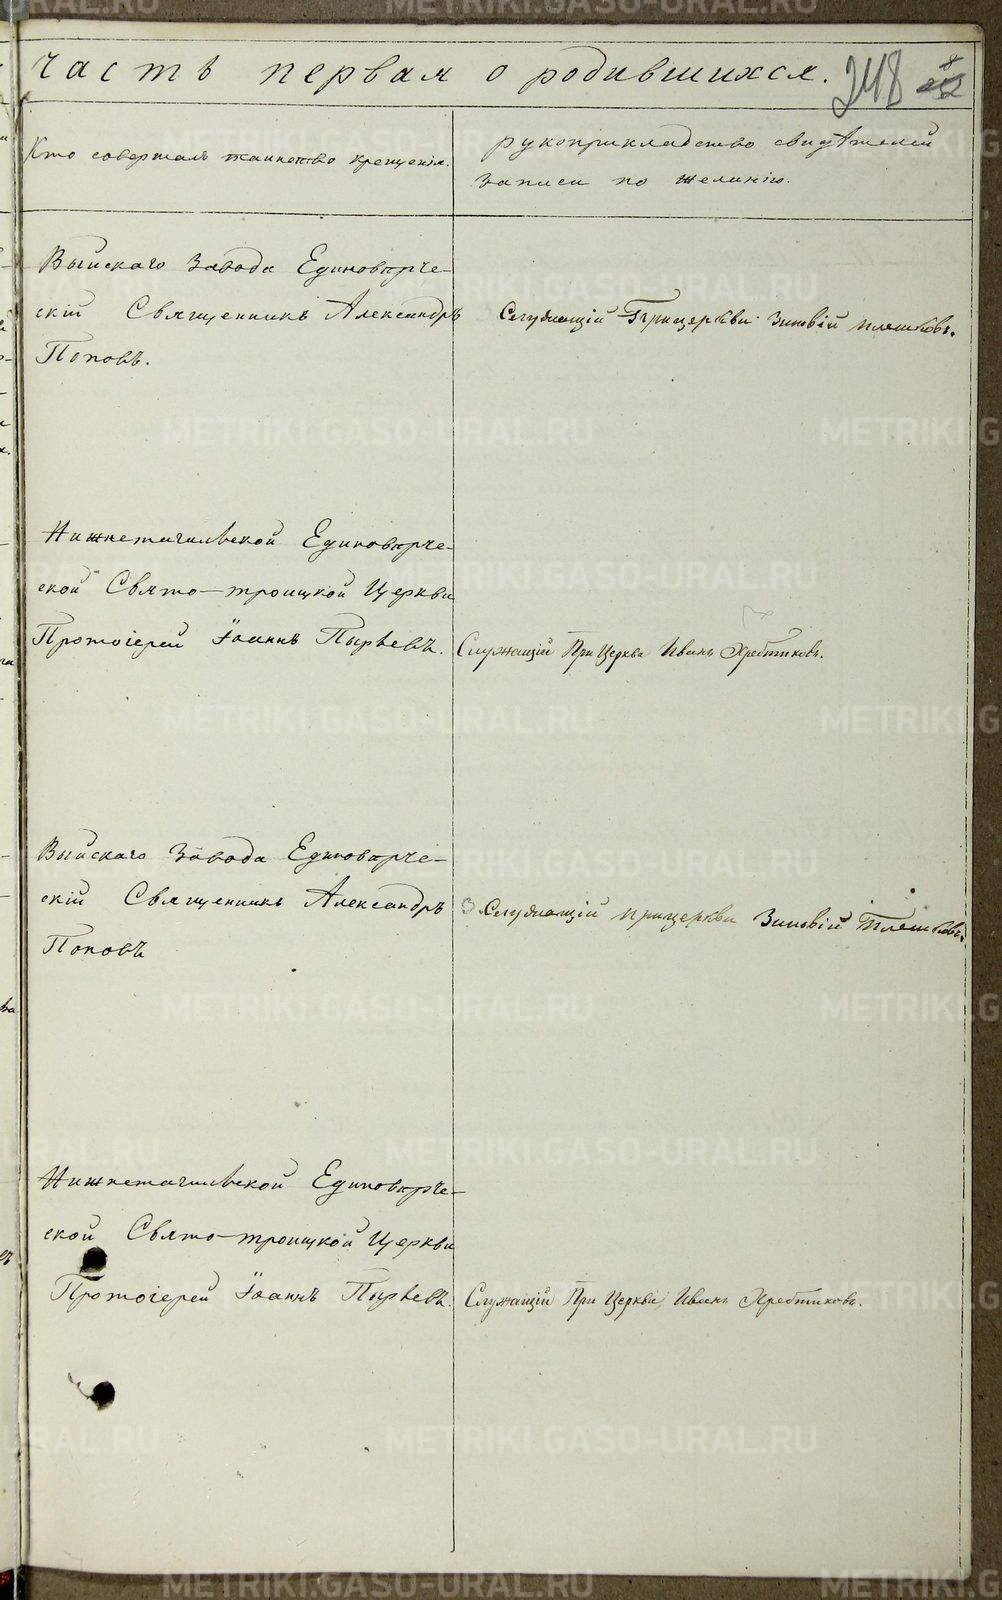 часть первая о родившихся.
248
Кто совершалъ таинство крещенія.
рукоприкладство свидѣтелей
записи по желанію.
Выйскаго Завода Единовѣрче-
скій Священникъ Александръ
Поповъ.
Служащій При церкви Зиновій Плешковъ.
Нижнетагильской Единовѣрче-
ской Свято-троицкой Церкви
Протоіерей Іоаннъ Пырьевъ.
Служащій При Церкви Иванъ Хребтиковъ.
Выйскаго Завода Единовѣрче-
скій Священникъ Александръ
Поповъ
Служащій при церкви Зиновій Плешковъ.
Нижнетагильской Единовѣрче-
ской Свято-троицкой Церкви
Протоіерей Іоаннъ Пырьевъ.
Служащій При Церкви Иванъ Хребтиковъ.
METRIKI.GASO-URAL.RU